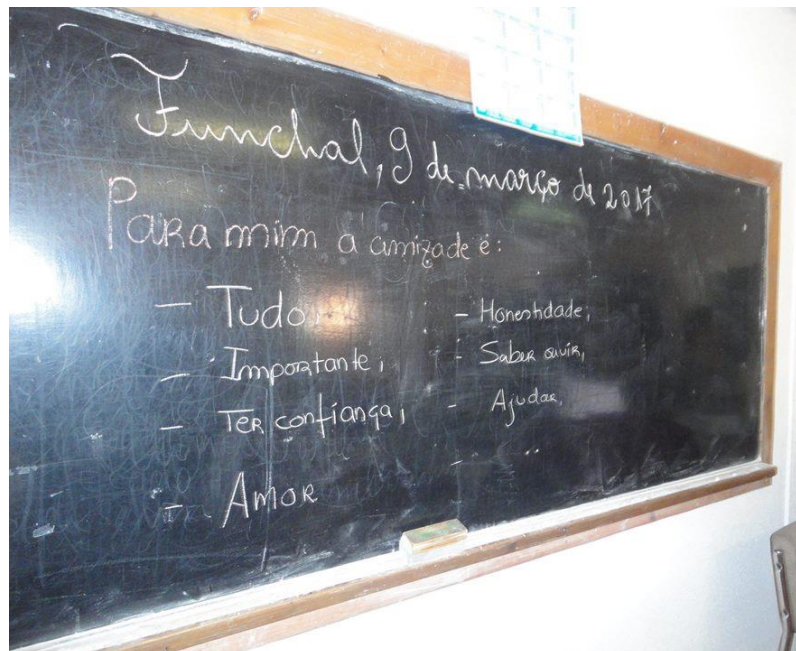 Funchal, 9 de março de 2017
Para mim a amizade é:
- Tudo,
- Importante,
- Ter confiança,
- Amor
- Honestidade,
- Saber ouvir,
- Ajudar,
-